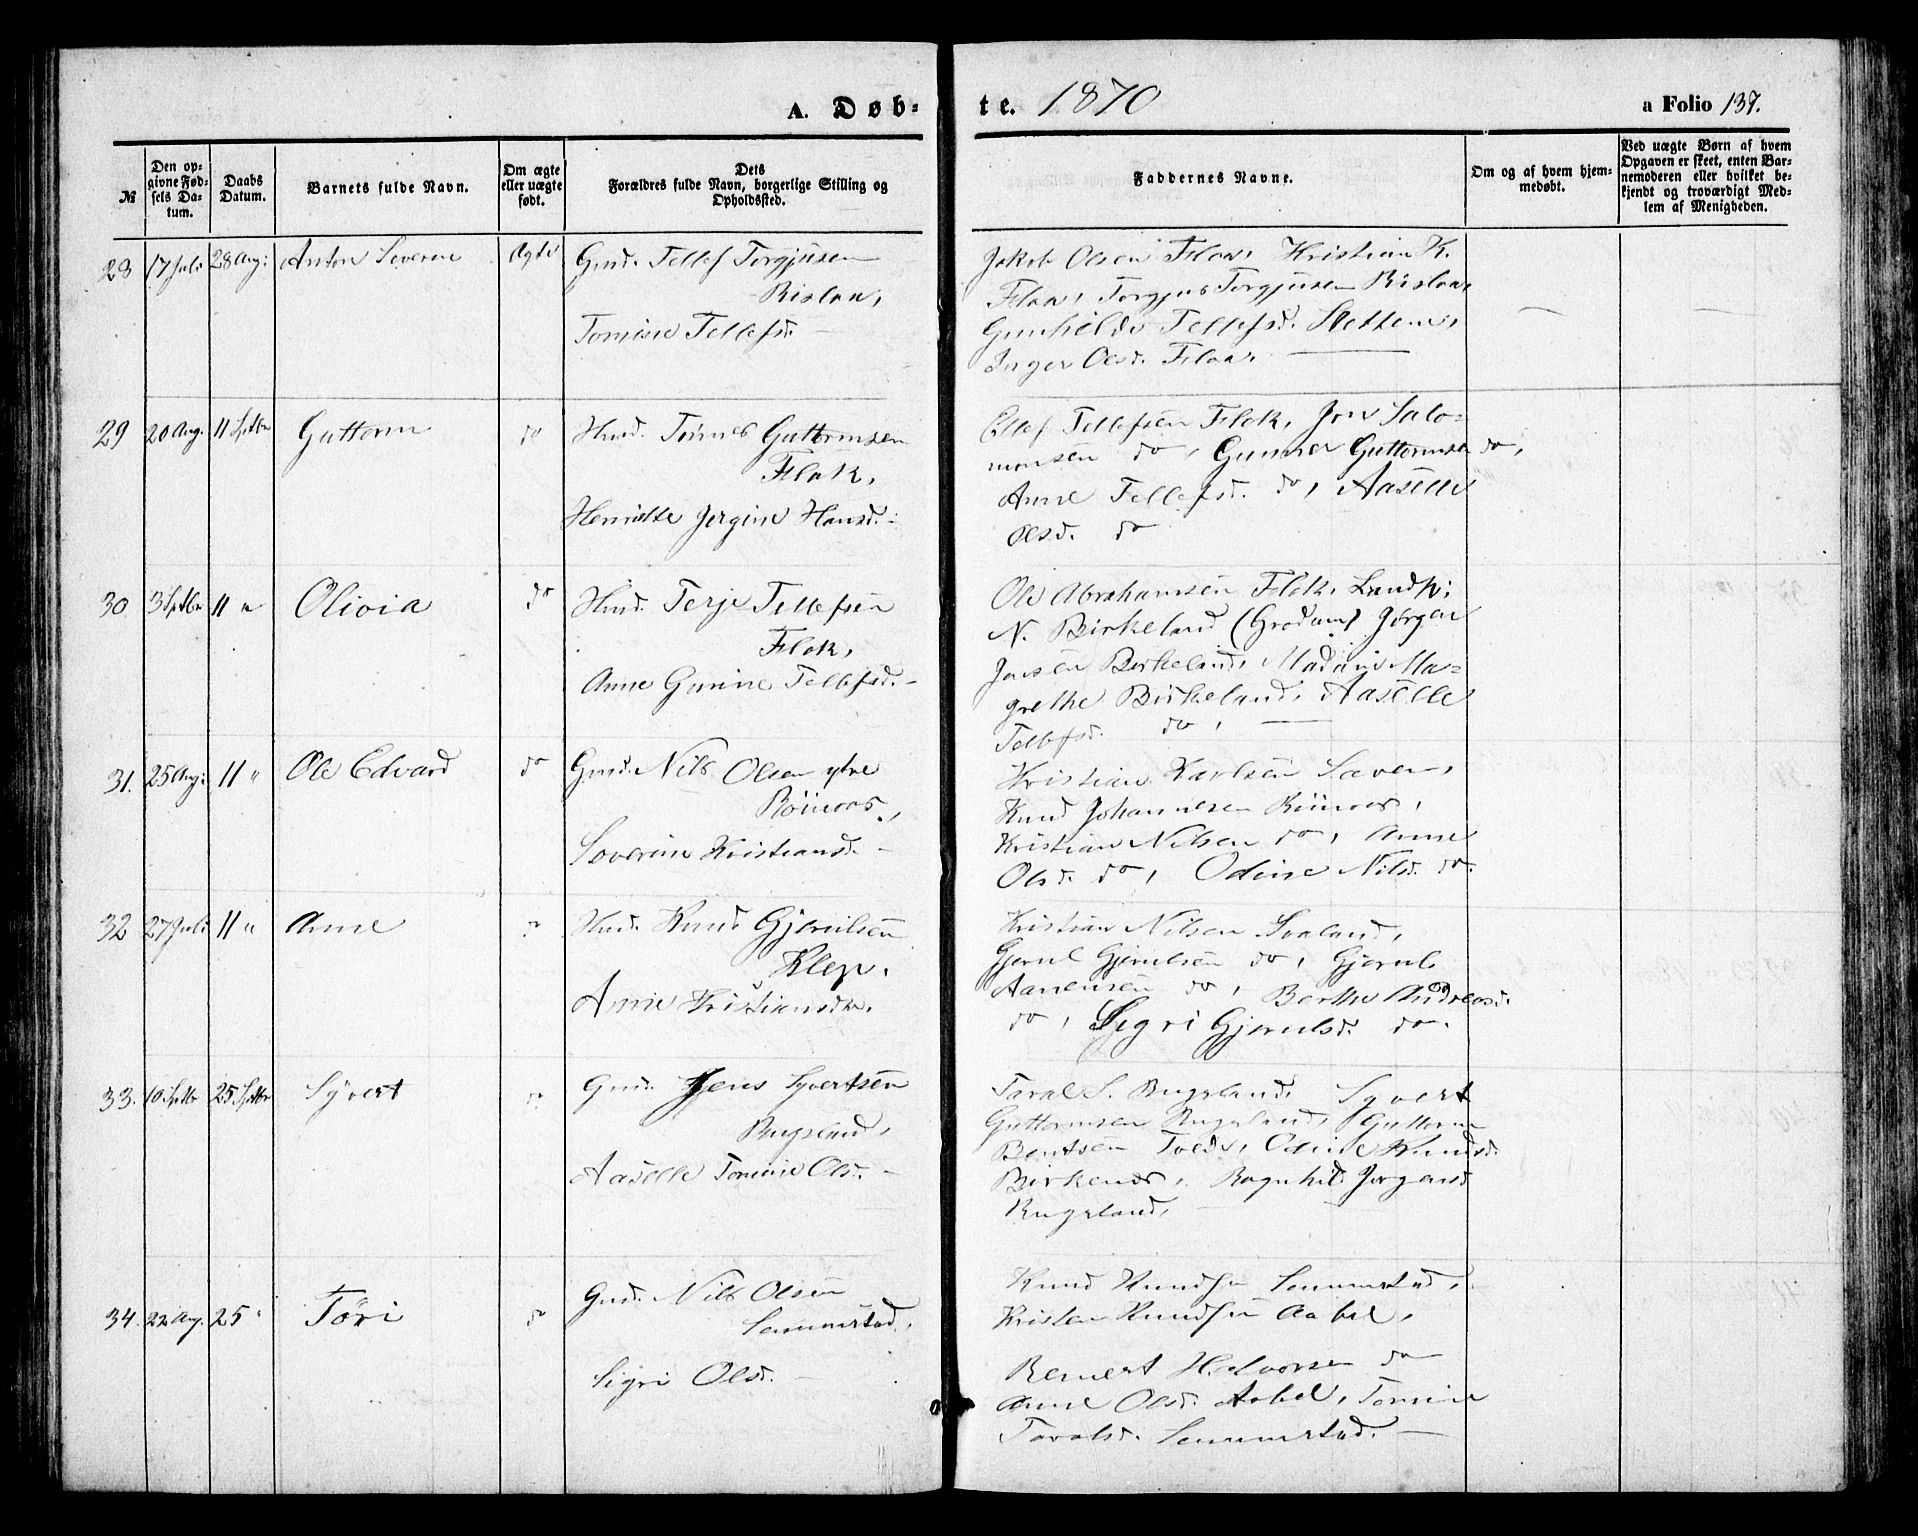 A. Døb-
te. 1870
a Folio 137.
№
Den opgivne Fødsels Datum.
Daabs Datum.
Barnets fulde Navn.
Om ægte eller uægte født.
Dets Forældres fulde Navn, borgerlige Stilling og Opholdssted.
Faddernes Navne.
Om og af hvem hjemmedøbt.
Ved uægte Børn af hvem Opgaven er skeet, enten Barnemoderen eller hvilket bekjendt og troværdigt Medlem af Menigheden.
28 17 Juli 28 Aug: Anton Severin Ægte
Gmd. Tellef Torgjusen
Rislaa,
Tomine Tellefsd. —
Jakob Olsen Flaa, Kristian K.
Flaa, Torgjus Torgjusen Rislaa,
Gunhilde Tellefsd. Sletten,
Inger Olsd. Flaa. —
29 20 Aug. 11 Sptbr Guttorm do
Husd. Tømes Guttormsen
Flak,
Henriette Jergine Hansd. -
Ellef Tellefsen Flak, Jon Salo-
monsen do, Gunner Guttormsen do,
Anne Tellefsd. do, Aaselle
Olsd. do
30 3 Sptbr 11 " Olivia do
Husd. Terje Tellefsen
Flak,
Anne Gurine Tellefsd. -
Ole Abrahamsen Flak, Landh:
N. Birkeland (Grødum) Jørgen
Jensen Birkeland, Madam Ma-
grethe Birkeland, Aaselle
Tellefsd. do, —
31. 25 Aug: 11 " Ole Edvard do
Gmd. Nils Olsen ytre
Røinaas,
Soverine Kristiansd. -
Kristian Karlsen Saven,
Knud Johannesen Røinaas,
Kristian Nilsen do, Anne
Olsd. do, Odine Nilsd. do.
32 27 Juli 11 " Anne do
Husd. Knud Gjerulsen
Klep.
Anne Kristiansdtr.
Kristian Nilsen Svaland,
Gjerul Gjerulsen do, Gjerul
Aanensen do, Berthe Andreasd.
do, Sigri Gjerulsd. do.
33. 10 Sptbr 25 Sptbr Syvert do
Gmd. Jens Syvertsen
Rugsland,
Aaselle Tomine Olsd. -
Taral S. Rugsland, Syvert
Guttormsen Rugsland, Guttorm
Bentsen Tvede, Odine Knudsd.
Birkenes, Ragnhild Jørgensd
Rugsland,
34. 22 Aug. 25 " Tøri do
Gmd. Nils Olsen
Senumstad,
Sigri Olsd. -
Knud Knudsen Senumstad,
Kristen Knudsen Aabel,
Bernert Halvorsen do
Anne Olsd. Aabel, Tomine
Taralsd. Senumstad. —